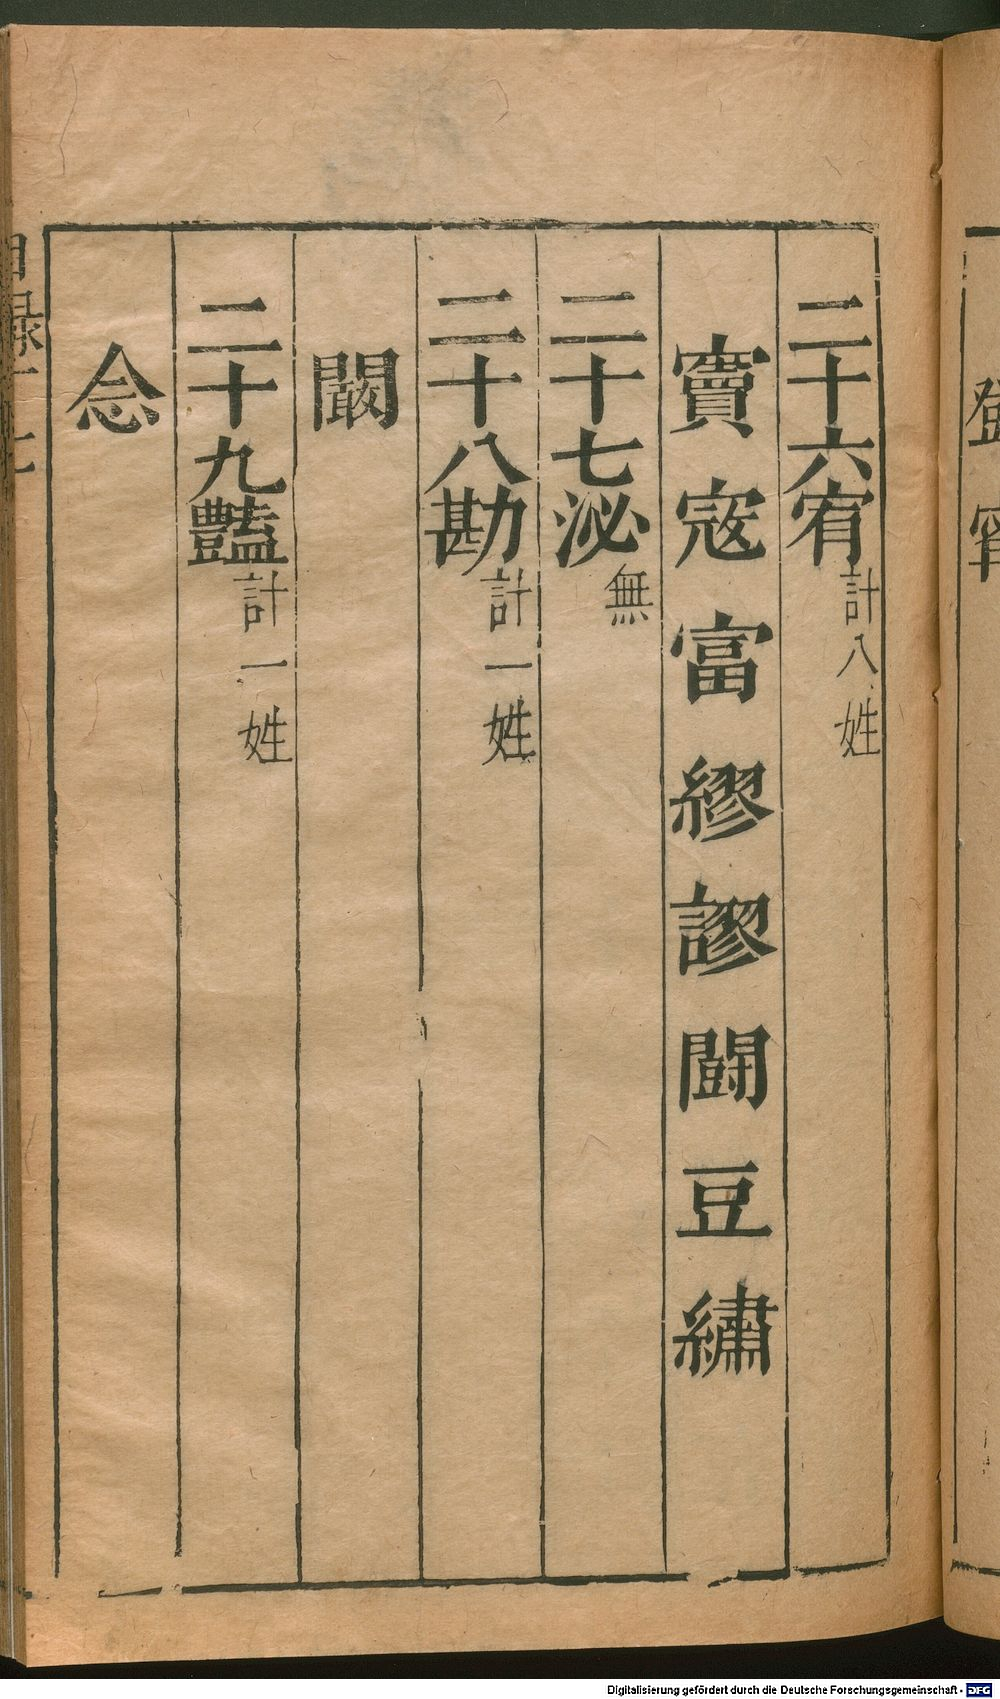 二十六宥計八姓
竇寇富繆謬鬪豆繡
二十七泌無
二十八勘計一姓
闞
二十九豔計一姓
念
目錄
Digitalisierung gefördert durch die Deutsche Forschungsgemeinschaft - DFG